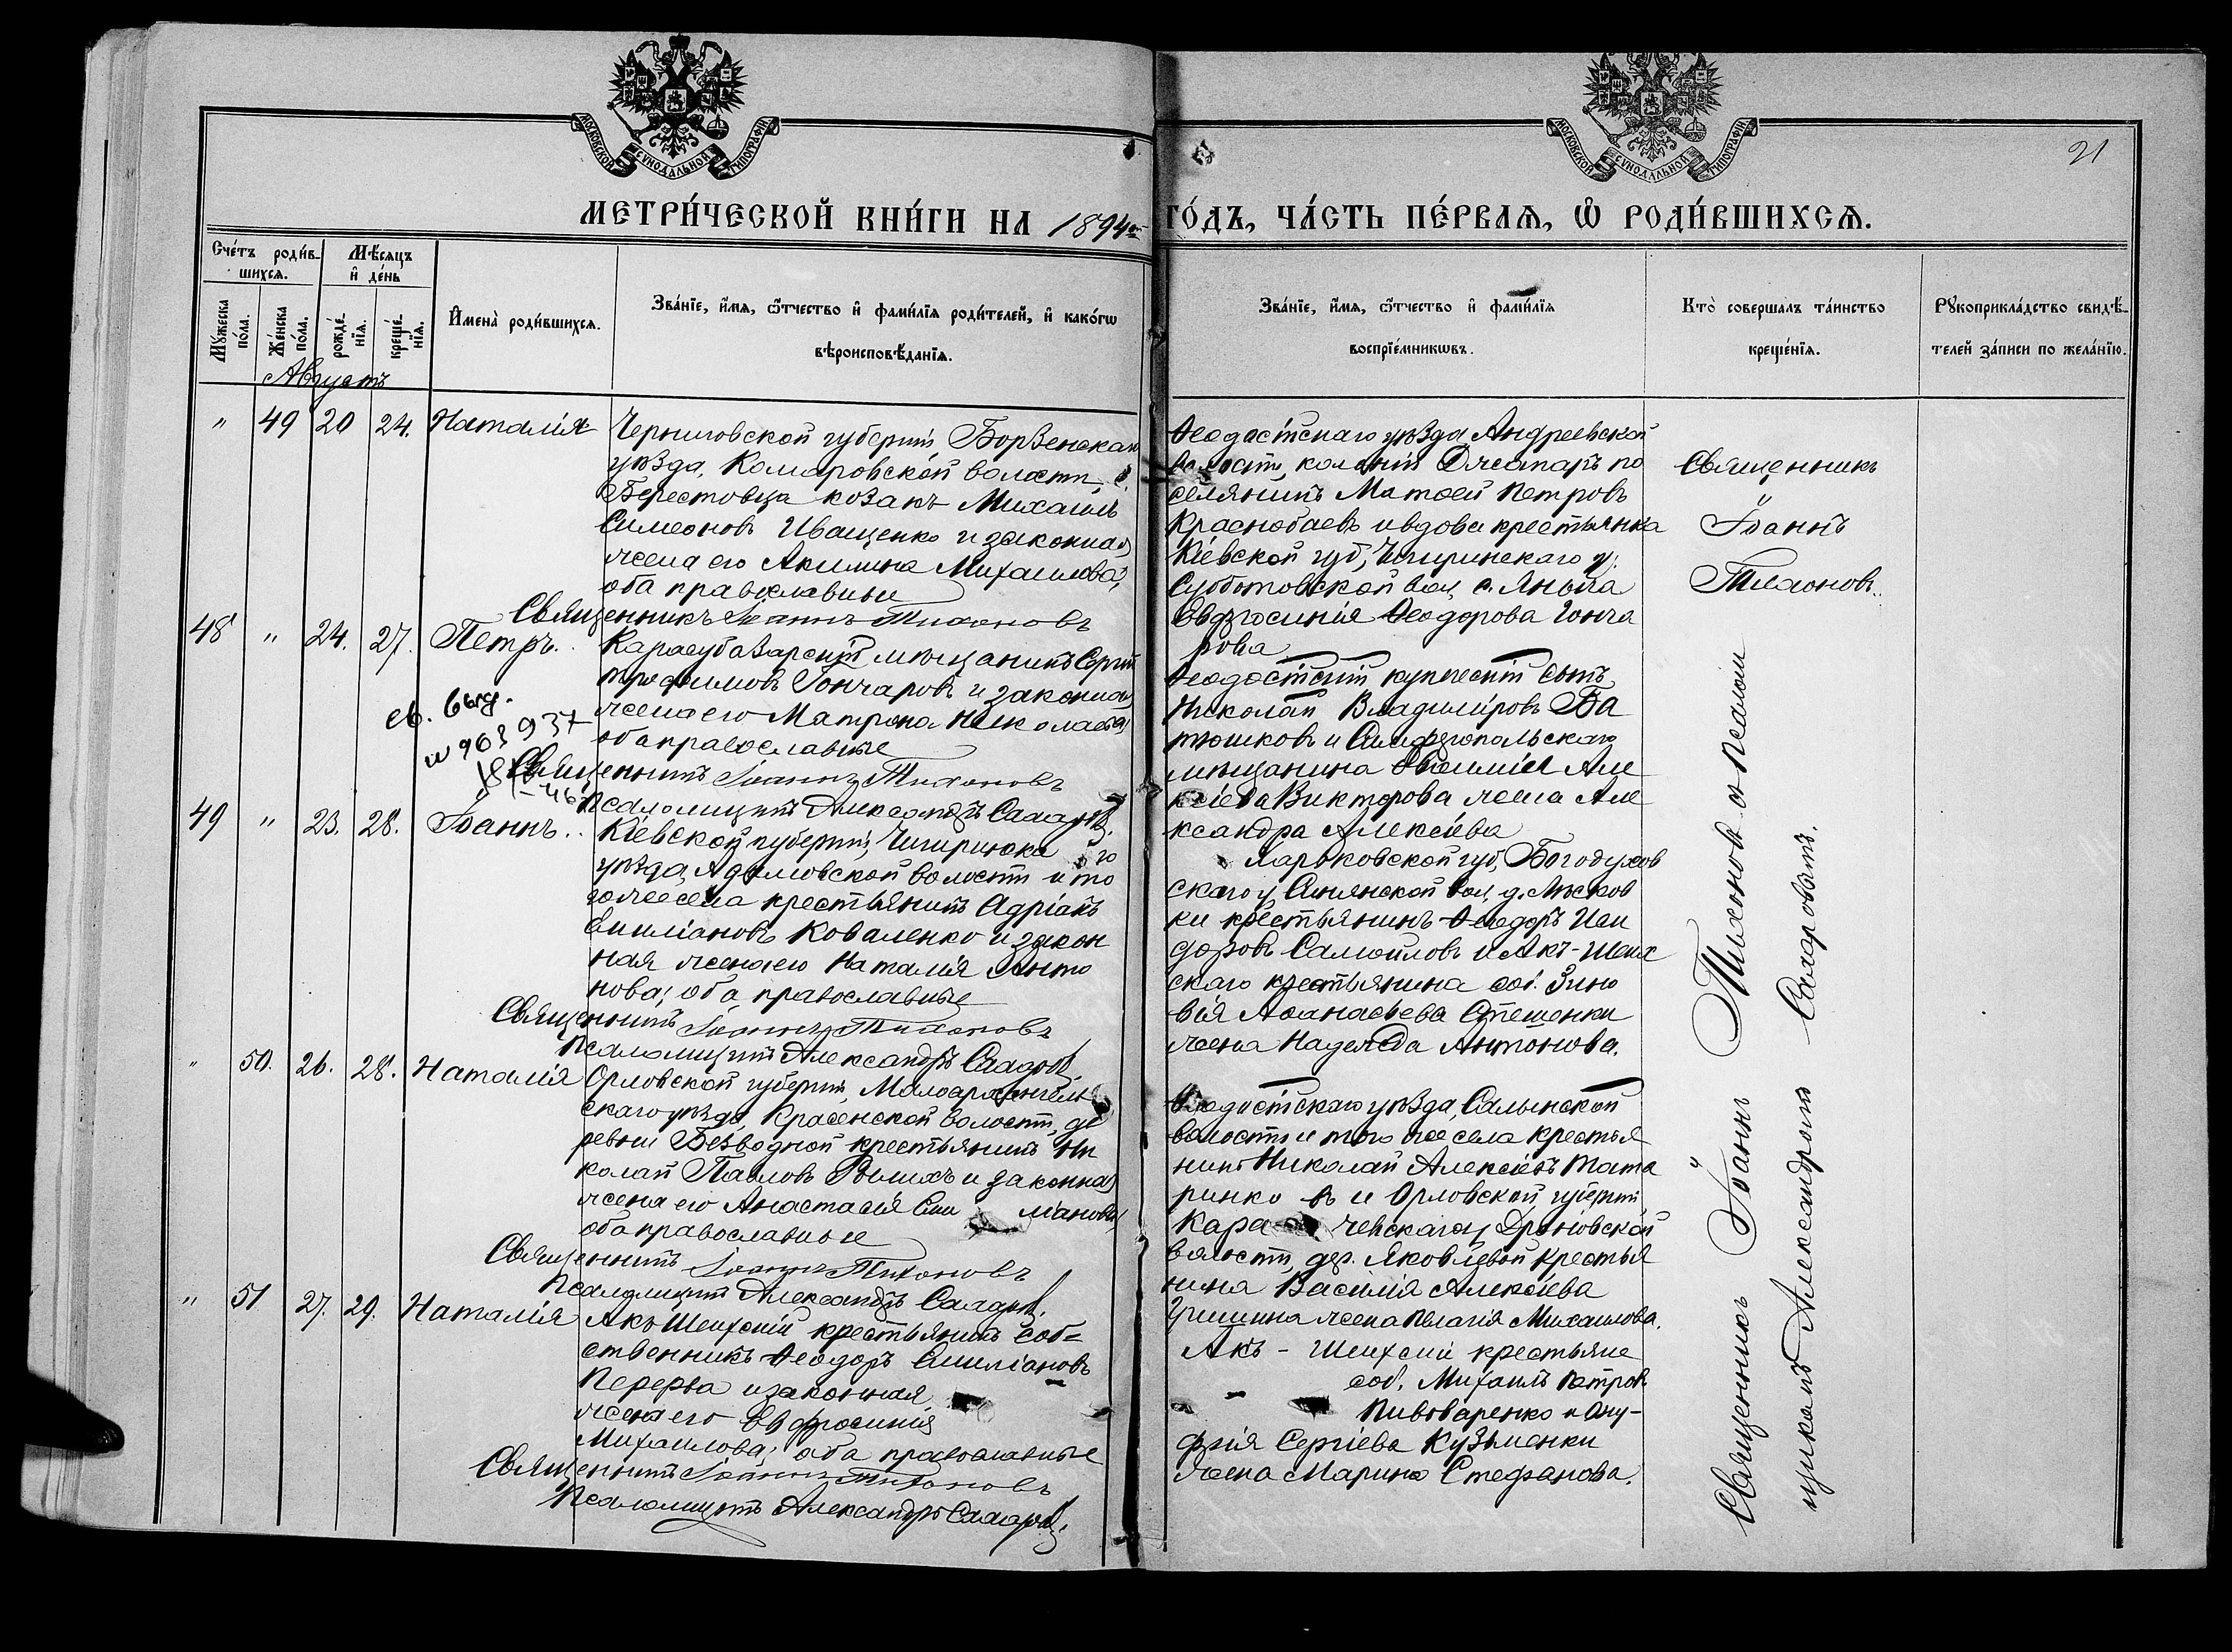 МОСКОВСКОЙ СѴНОДАЛЬНОЙ ТИПОГРАФІИ
МОСКОВСКОЙ СѴНОДАЛЬНОЙ ТИПОГРАФІИ
21
МЕТРИ́ЧЕСКОЙ КНИ́ГИ НА 1894 ГО́ДЪ, ЧА́СТЬ ПЕ́РВАѦ, Ѡ҆ РОДИ́ВШИХСѦ.
Сче́тъ роди́в-
шихсѧ.
Мѣ́сѧцъ
и҆ де́нь
Мꙋ́жеска
по́ла.
Же́нска
по́ла.
рожде́-
нїѧ.
креще́-
нїѧ.
И҆мена̀ роди́вшихсѧ.
Зва́нїе, и҆́мѧ, ѻ҆́тчество и҆ фами́лїѧ роди́телей, и҆ како́гѡ
вѣроисповѣ́данїѧ.
Зва́нїе, и҆́мѧ, ѻ҆́тчество и҆ фами́лїѧ
воспрїе́мникѡвъ.
Кто̀ совершалъ та́инство
креще́нїѧ.
Рꙋкоприкла́дство свидѣ́-
телей за́писи по жела́нїю.
Августъ
" 49 20 24. Наталія
Черниговской губерніи Борзенскаго
уѣзда, Комаровской волости, с.
Берестовца козакъ Михаилъ
Симеоновъ Иващенко и законная
жена его Акилина Михаилова,
оба православные
Священникъ Іоаннъ Тихоновъ
Ѳеодосійскаго уѣзда, Андреевской
волости, колоніи Джапаръ по
селянинъ Матѳей Петровъ
Краснобаевъ и вдова крестьянка
Кіевской губ, Чигиринскаго у.
Субботовской вол, с. Яныча
Евфросинія Ѳеодорова Гонча
рова
Священникъ
Іоаннъ
Тихоновъ.
48 " 24. 27. Петръ.
Карасубазарскій мѣщанинъ Сергій
Трофимовъ Гончаровъ и законная
жена его Матрона Николаева
оба православные
Священникъ Іоаннъ Тихоновъ
Псаломщикъ Александръ Самаровъ.
св. выд.
Ѳеодосійскій купеческій сынъ
Николай Владиміровъ Ба
тюшковъ и Симферопольскаго
мѣщанина Ѳомы Але
ксіева Викторова жена Але
ксандра Алексіева
49 " 23. 28. Іоаннъ.
Кіевской губерніи, Чигиринска го
уѣзда, Адамовской волости и то
гоже села крестьянинъ Адріанъ
Емиліановъ Коваленко и закон
ная жена его Наталія Анто
нова; оба православные
Священникъ Іоаннъ Тихоновъ
Псаломщикъ Александръ Самаровъ.
Харьковской губ, Богодухов
скаго у, Сѣнянской вол, д. Лѣсков
ки крестьянинъ Ѳеодоръ Иси
доровъ Самойловъ и Акъ-Шеих
скаго крестьянина соб. Зино
вія Аѳанасьева Стешенки
жена Надежда Антонова.
" 50. 26. 28. Наталія
Орловской губерніи, Малоархангель
скаго уѣзда, Красенской волости, де
ревни Безводной крестьянинъ Ни
колай Павловъ и законная
жена его Анастасія Еми ліанова
оба православные
Священникъ Іоаннъ Тихоновъ
Псаломщикъ Александръ Самаровъ.
Ѳеодосійскаго уѣзда, Салынской
волости и того же села крестья
нинъ Николай Алексіевъ Тата
ринко въ и Орловской губерніи
Кара чевскаго у Дроновской
волости, дер. Яковлевой крестья
нина Василія Алексіева
Гришина жена Пелагія Михаилова.
" 51 27. 29. Наталія
Акъ Шеихскій крестьянинъ соб-
ственникъ Ѳеодоръ Емиліановъ
Перерва и законная
жена его Евфросинія
Михаилова; оба православные
Священникъ Іоаннъ Тихоновъ
Псаломщикъ Александръ Самаровъ.
Акъ - Шеихскіе крестьяне
соб. Михаилъ Петровъ
Пивоваренко и Ону-
фрія Сергіева Кузьменки
жена Марина Стефанова.
Священникъ Іоаннъ Тихоновъ съ псалом
щикомъ Александромъ Самаровымъ.